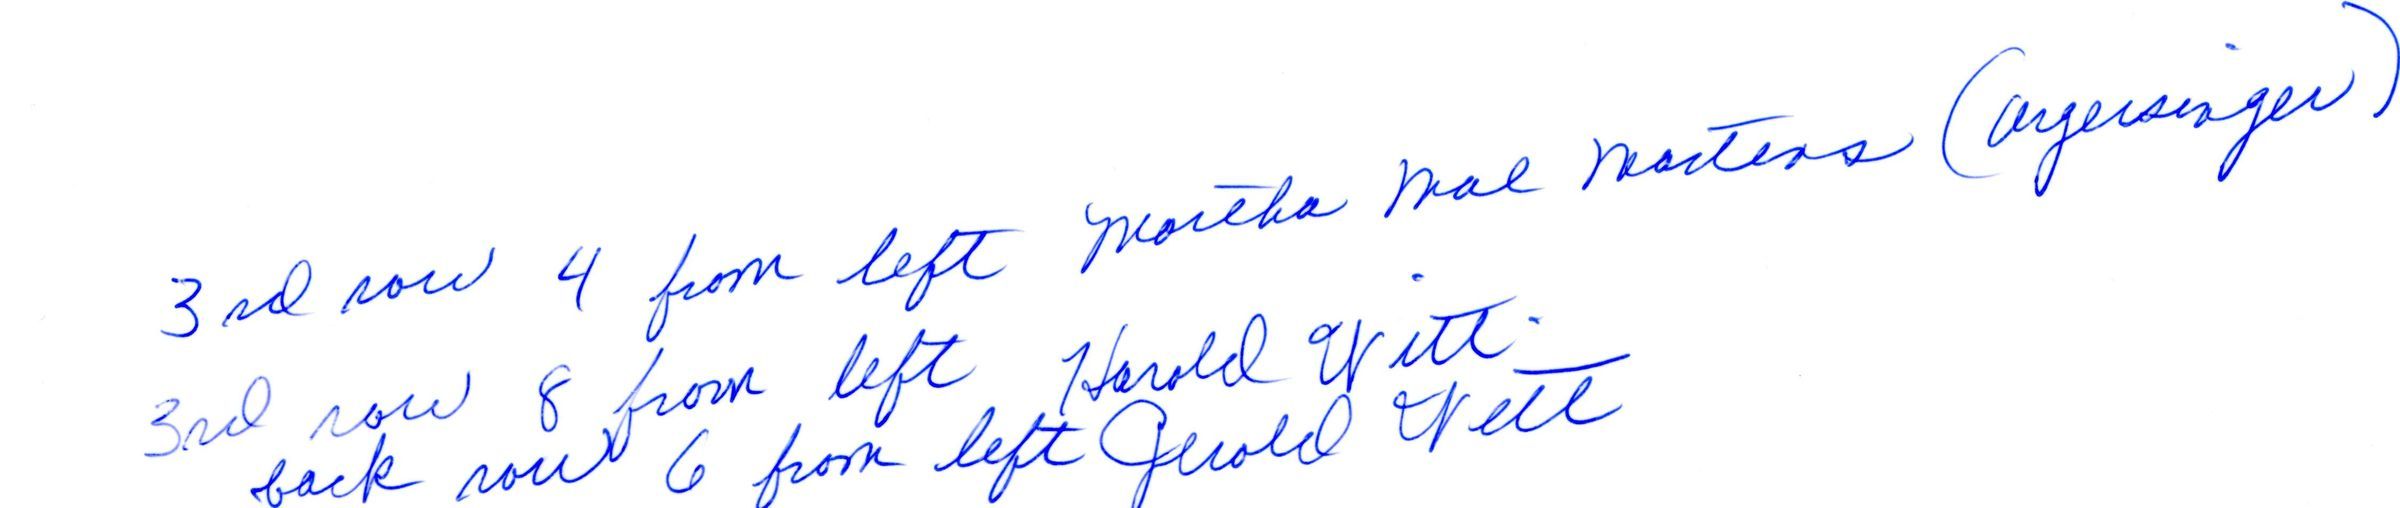 3rd row 4 from left Martha Mae Martens (Argersinger)
3rd row 8 from left Harold Witt
back row 6 from left Gerold Witt